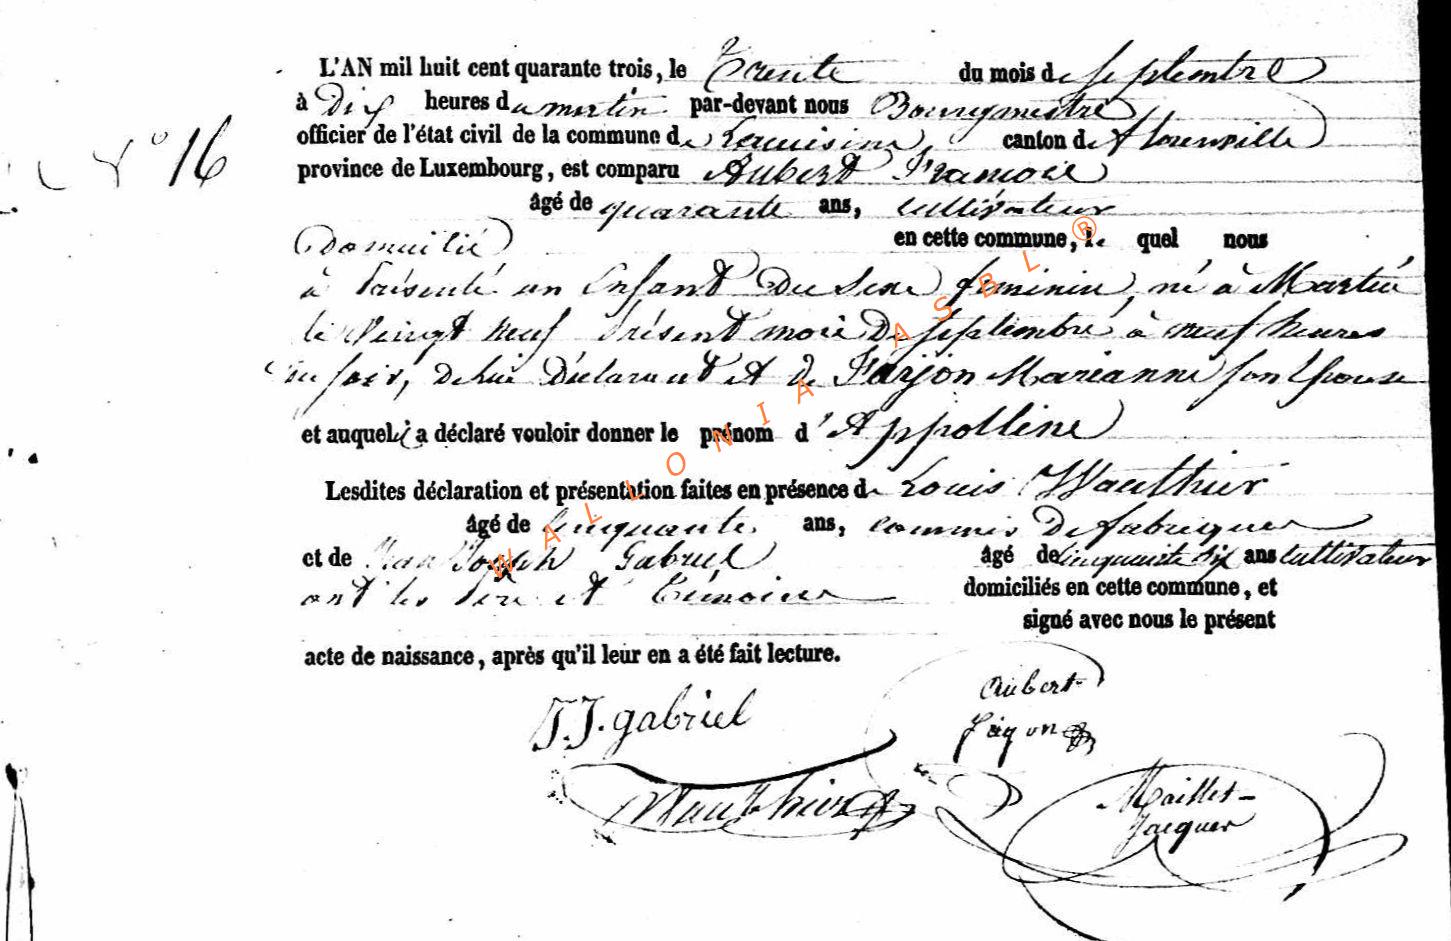 L'AN mil huit cent quarante trois, le Trente du mois de Septembre
à Dix heures du matin par-devant nous Bourgmestre
officier de l'état civil de la commune de canton de florenville
N° 16
province de Luxembourg, est comparu Aubert François
âgé de quarante ans, cultivateur
Domicilié en cette commune, le quel nous
à présenté un Enfant Du Sexe féminin, né à Martué
le Vingt neuf présent mois De Septembre à neuf heures
du soir, De lui Déclarant et de Farjon Marianne son Epouse
et auquel a déclaré vouloir donner le prénom d'Appolline
Lesdites déclaration et présentation faites en présence de Louis Wauthier
âgé de Cinquante ans, commis De fabriques
et de Jean Joseph Gabriel âgé de cinquante six ans cultivateur
ont les Père et Témoins domiciliés en cette commune, et
signé avec nous le présent
acte de naissance, après qu'il leur en a été fait lecture.
WALLONIA ASBL ®
J.J. gabriel
Aubert
Wauthier
Maillet-
Jacques